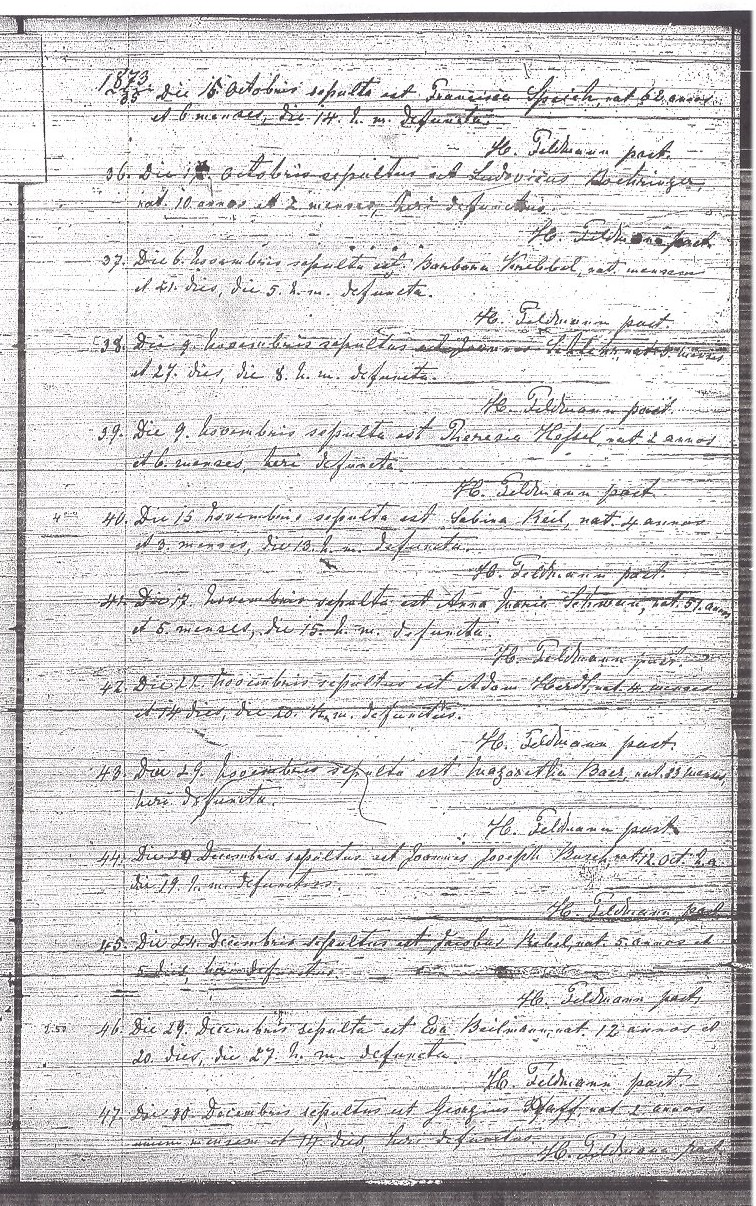 1873
35. Die 15 Octobris sepulta est Francisca Speich, nat. 62 annos
et 6 menses, die 14. h. m. defuncta.
H. Feldmann past.
36. Die Octobris sepultus est Ludovicus Boehringer
nat. 10 annos et 2 menses, heri defunctus.
H. Feldmann past.
37. Die 6. Novembris sepulta est Barbara nat. mensem
et 21. dies, die 5. h. m. defuncta.
H. Feldmann past
38. Die 9. Novembris sepultus est Joannes nat. menses
et 27. dies, die 8. h. m. defuncta.
H. Feldmann past.
39. Die 9. Novembris sepulta est Theresia Hessel, nat 2 annos
et 6 menses, heri defuncta.
H. Feldmann past
40. Die 15 Novembris sepulta est Sabina Keil, nat. 4 annos
et 3. menses, die 13. h. m. defuncta.
H. Feldmann past.
41. Die 17. Novembris sepulta est Anna Maria Schwan, nat. 51. annos
et 5 menses, die 15. h. m. defuncta.
H. Feldmann past.
42. Die Novembris sepultus est Adam nat. 4 menses
et 14 dies, die 20. h. m. defunctus.
H. Feldmann past
43. Die 29. Novembris sepulta est Margaretha Baer, nat. menses,
heri defuncta.
H. Feldmann past
44. Die Decembris sepultus est Joannes Joseph Busch, nat. 12. Oct. h. a
die 19. h. m. defunctus.
H. Feldmann past
45. Die 24. Decembris sepultus est Jacobus Rebel, nat. 5. annos et
5 dies, heri defunctus.
H. Feldmann past
46. Die 29. Decembris sepulta est Eva Beilmann, nat 12 annos et
20. dies, die 27. h. m. defuncta.
H. Feldmann past
47. Die 30 Decembris sepultus est Georgius Pfaff, nat 2 annos
unum mensem et 14 dies, heri defunctus.
H. Feldmann past